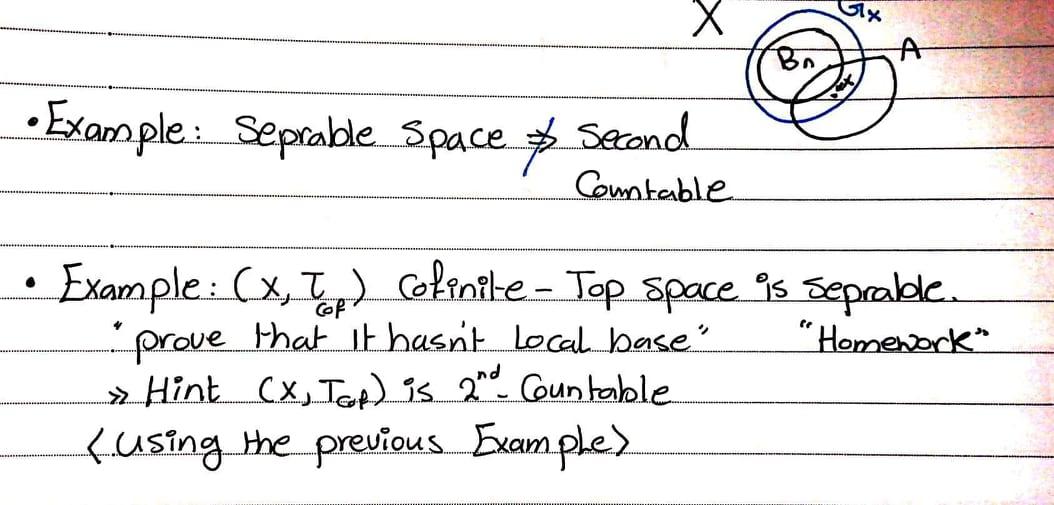 X Gx
Bn A
• Example: Seprable Space ⇏ Second
Countable
• Example: (X, τcof) Cofinite - Top space is Seprable.
"prove that it hasn't Local base" "Homework"
» Hint (X, Tcof) is 2nd - Countable
<using the previous Example>